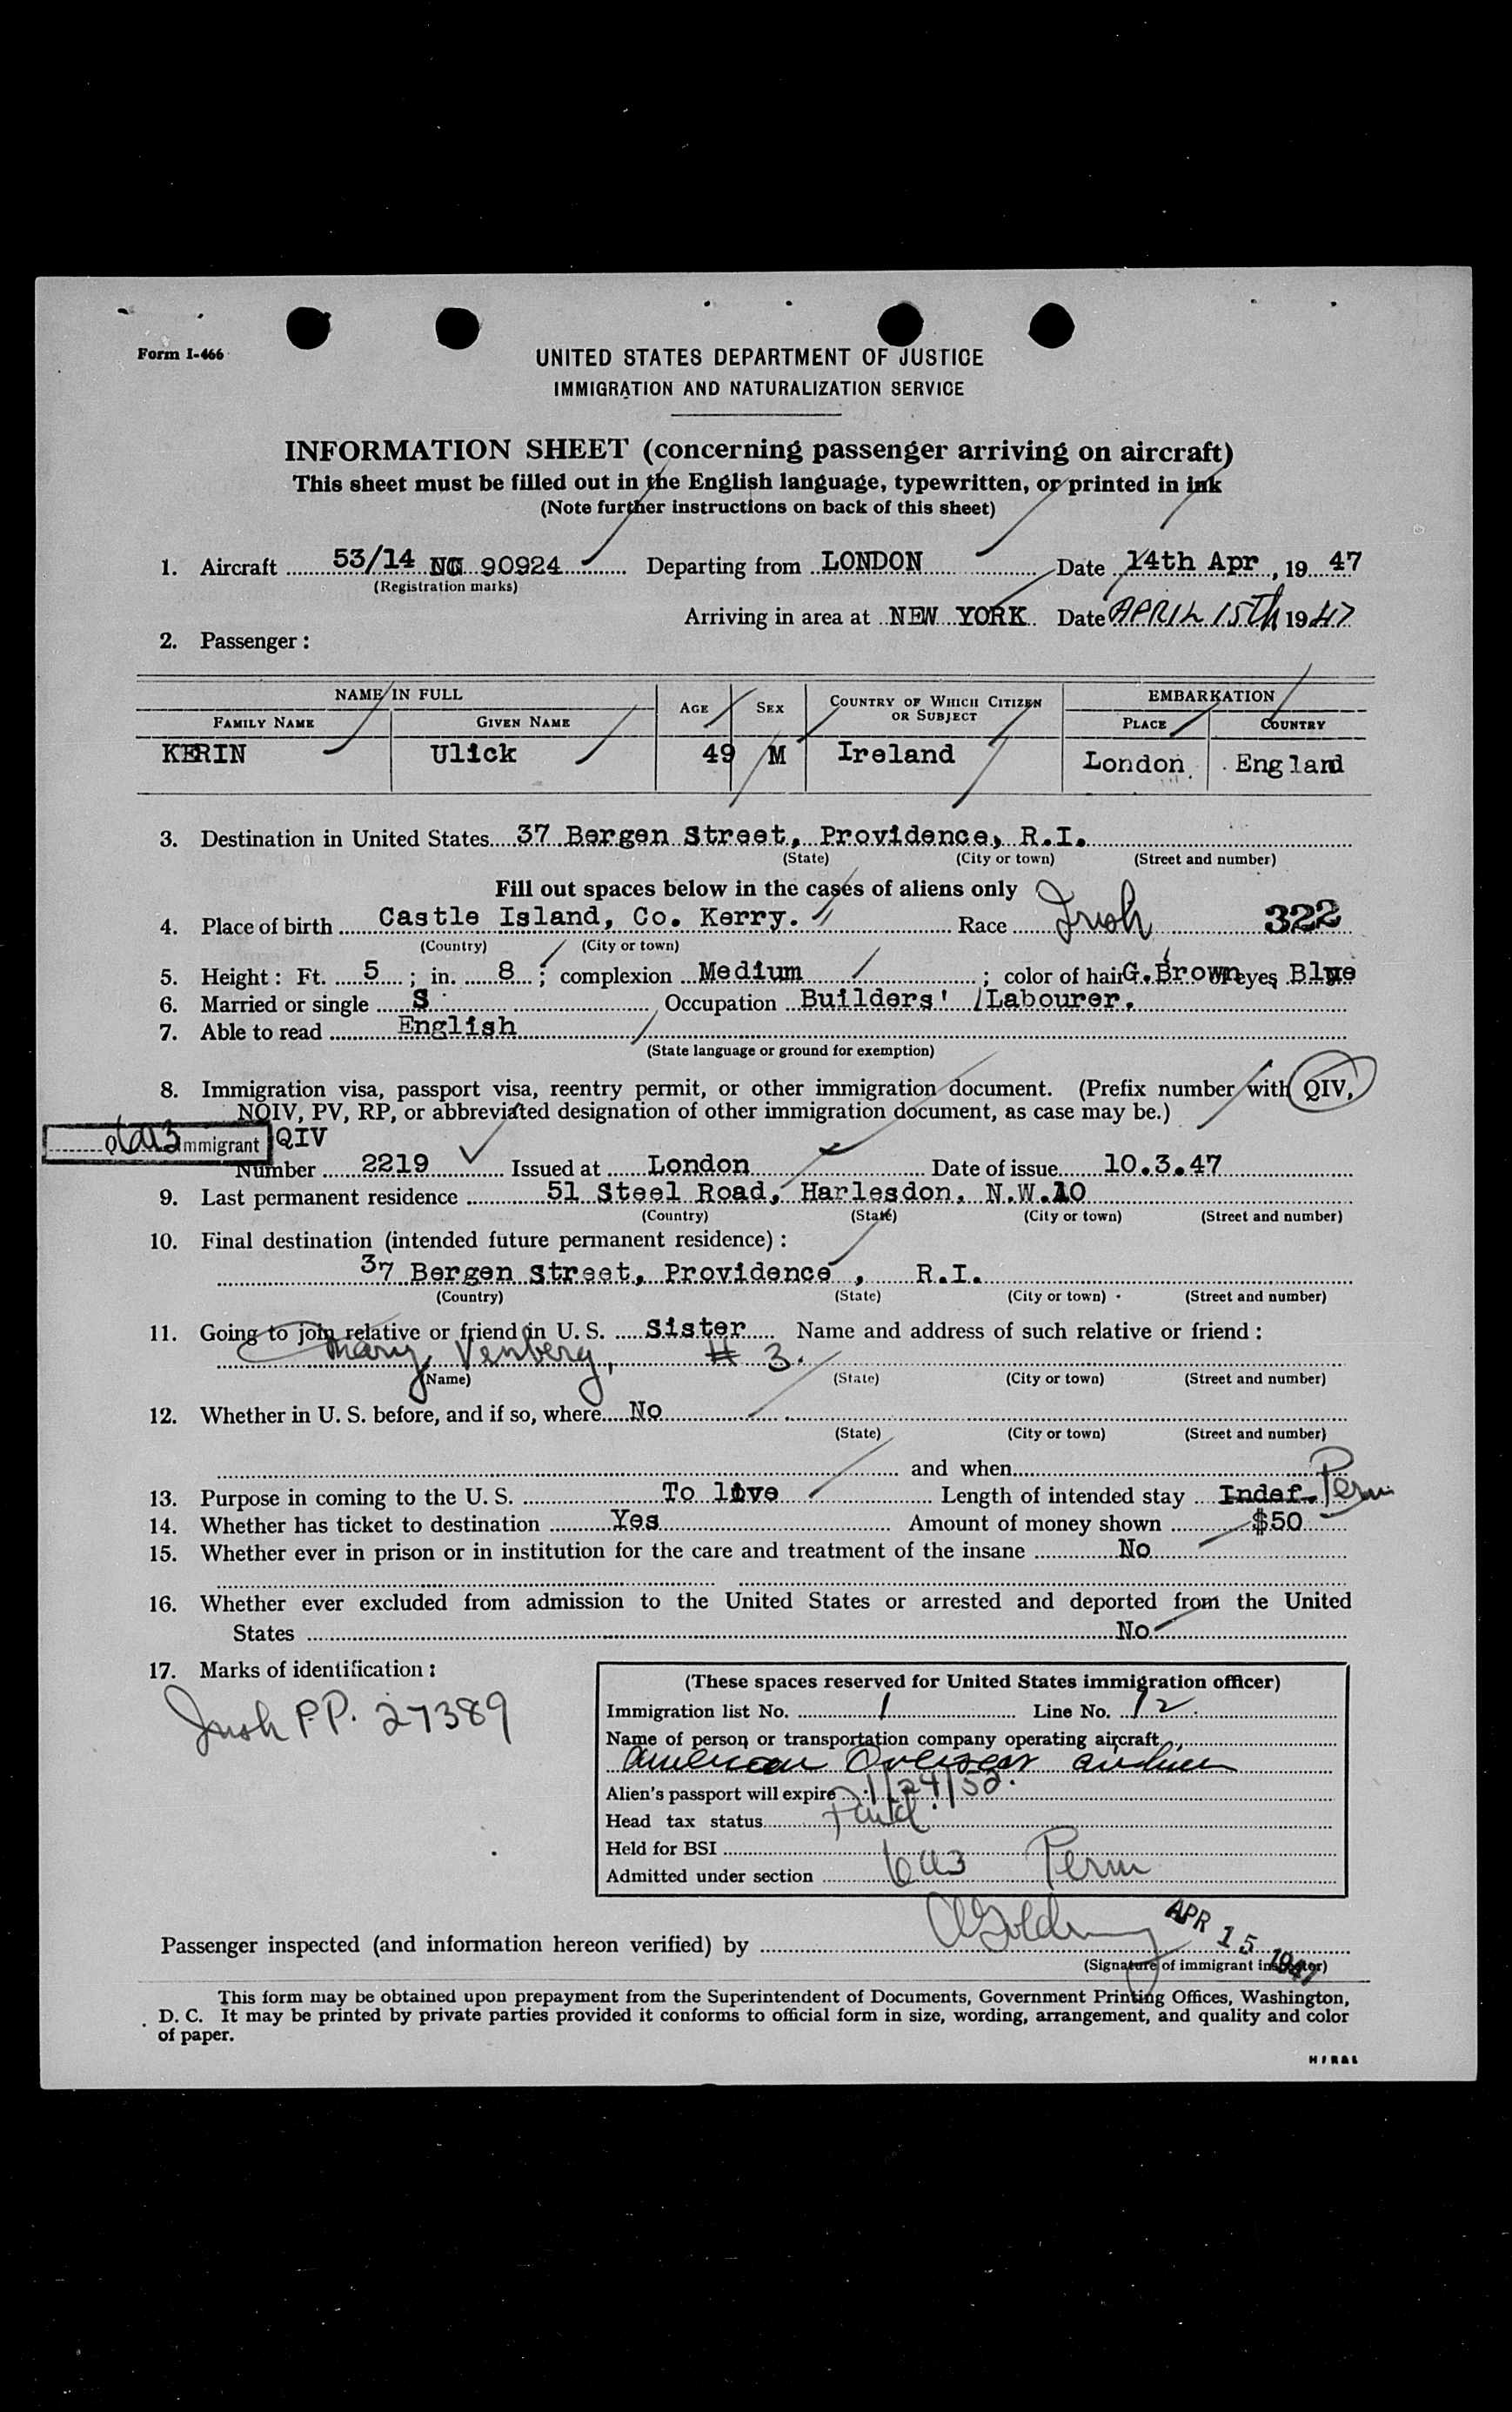 Form I-466
UNITED STATES DEPARTMENT OF JUSTICE
IMMIGRATION AND NATURALIZATION SERVICE
INFORMATION SHEET (concerning passenger arriving on aircraft)
This sheet must be filled out in the English language, typewritten, or printed in ink
(Note further instructions on back of this sheet)
1. Aircraft 53/14 NC 90924 Departing from LONDON Date 14th Apr, 19 47
(Registration marks)
Arriving in area at NEW YORK Date APRIL 15Th 1947
2. Passenger:
NAME IN FULL AGE SEX COUNTRY OF WHICH CITIZEN OR SUBJECT EMBARKATION
FAMILY NAME GIVEN NAME PLACE COUNTRY
KERIN Ulick 49 M Ireland London England
3. Destination in United States 37 Bergen Street, Providence, R.I.
(State) (City or town) (Street and number)
Fill out spaces below in the cases of aliens only
4. Place of birth Castle Island, Co. Kerry. Race Irish 322
(Country) (City or town)
5. Height: Ft. 5; in. 8; complexion Medium; color of hair G. Brown eyes Blue
6. Married or single S Occupation Builders' Labourer.
7. Able to read English
(State language or ground for exemption)
8. Immigration visa, passport visa, reentry permit, or other immigration document. (Prefix number with QIV,
NQIV, PV, RP, or abbreviated designation of other immigration document, as case may be.)
6a3 immigrant QIV
Number 2219 Issued at London Date of issue 10.3.47
9. Last permanent residence 51 Steel Road, Harlesdon, N.W.10
(Country) (State) (City or town) (Street and number)
10. Final destination (intended future permanent residence):
37 Bergen Street, Providence, R.I.
(Country) (State) (City or town) (Street and number)
11. Going to join relative or friend in U. S. Sister Name and address of such relative or friend:
Mary Venberg, # 3.
(Name) (State) (City or town) (Street and number)
12. Whether in U. S. before, and if so, where No
(State) (City or town) (Street and number)
and when
13. Purpose in coming to the U. S. To live Length of intended stay Indef. Perm
14. Whether has ticket to destination Yes Amount of money shown $50
15. Whether ever in prison or in institution for the care and treatment of the insane No
16. Whether ever excluded from admission to the United States or arrested and deported from the United
States No
17. Marks of identification:
Irish P.P. 27389
(These spaces reserved for United States immigration officer)
Immigration list No. 1 Line No. 12.
Name of person or transportation company operating aircraft
American Overseas airlines
Alien's passport will expire 1/24/52.
Head tax status Paid.
Held for BSI
Admitted under section 6a3 Perm
Passenger inspected (and information hereon verified) by
APR 15 1947
(Signature of immigrant inspector)
This form may be obtained upon prepayment from the Superintendent of Documents, Government Printing Offices, Washington,
D. C. It may be printed by private parties provided it conforms to official form in size, wording, arrangement, and quality and color
of paper.